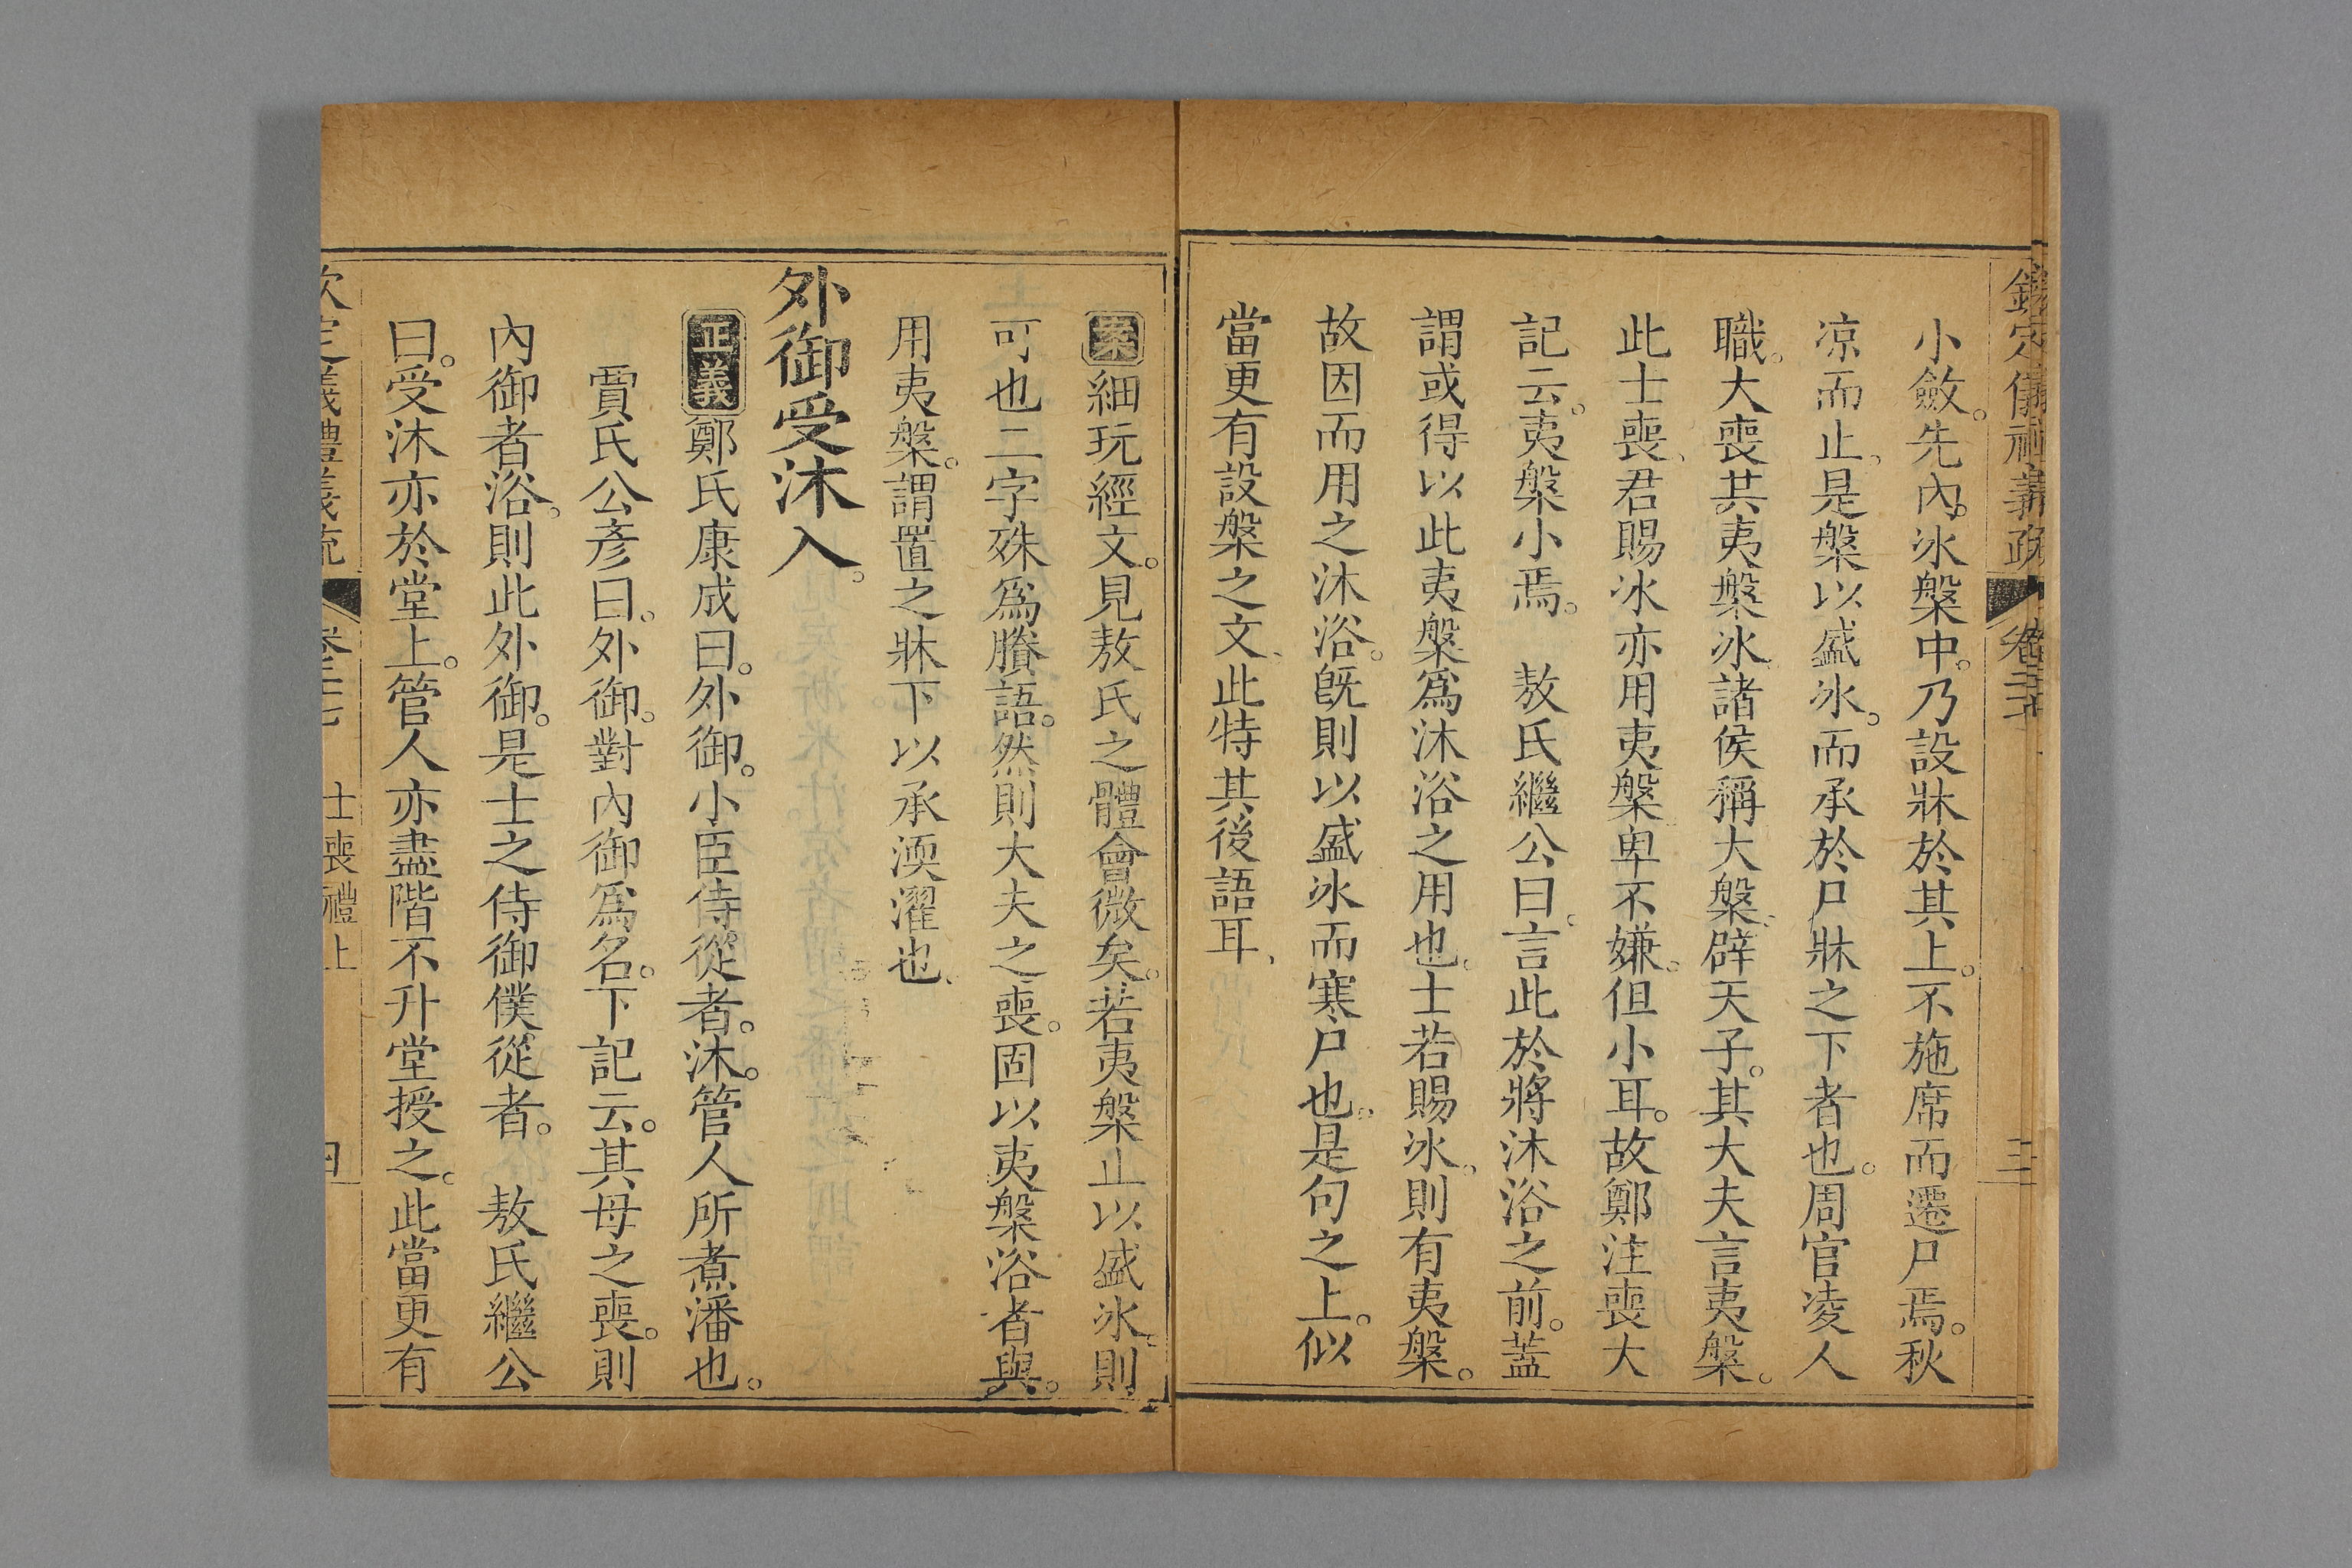 欽定儀禮義疏 卷二十七 三
小斂。先內冰槃中。乃設牀於其上。不施席而遷尸焉。秋
凉而止。是槃以盛冰。而承於尸牀之下者也。周官凌人
職。大喪共夷槃冰。諸侯稱大槃。辟天子。其大夫言夷槃。
此士喪、君賜冰亦用夷槃卑不嫌。但小耳。故鄭注喪大
記云。夷槃小焉。 敖氏繼公曰。言此於將沐浴之前。蓋
謂或得以此夷槃爲沐浴之用也。士若賜冰。則有夷槃。
故因而用之沐浴。旣則以盛冰而寒尸也。是句之上。似
當更有設槃之文、此特其後語耳、
案細玩經文。見敖氏之體會微矣。若夷槃止以盛冰。則
可也二字殊爲賸語。然則大夫之喪。固以夷槃浴者與。
用夷槃。謂置之牀下以承渜濯也、
外御受沐入。
正義鄭氏康成曰。外御。小臣侍從者。沐。管人所煮潘也。
賈氏公彥曰。外御。對內御爲名。下記云。其母之喪。則
內御者浴。則此外御。是士之侍御僕從者。 敖氏繼公
曰。受沐亦於堂上。管人亦盡階不升堂授之。此當更有
欽定儀禮義疏 卷二十七 士喪禮上 四